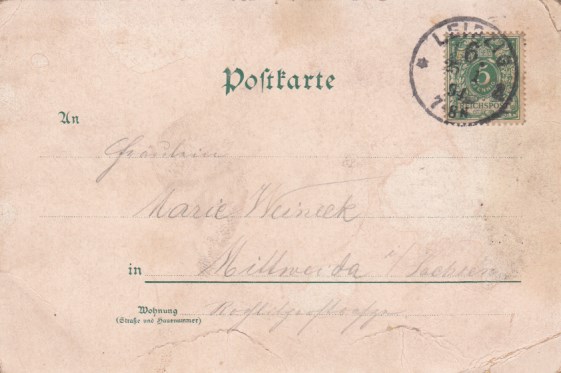 LEIPZIG
6
5
REICHSPOST
7-8N
Postkarte
An
Fräulein
Marie Weineck
in Mittweida i/Sachsen
Wohnung
(Straße und Hausnummer)